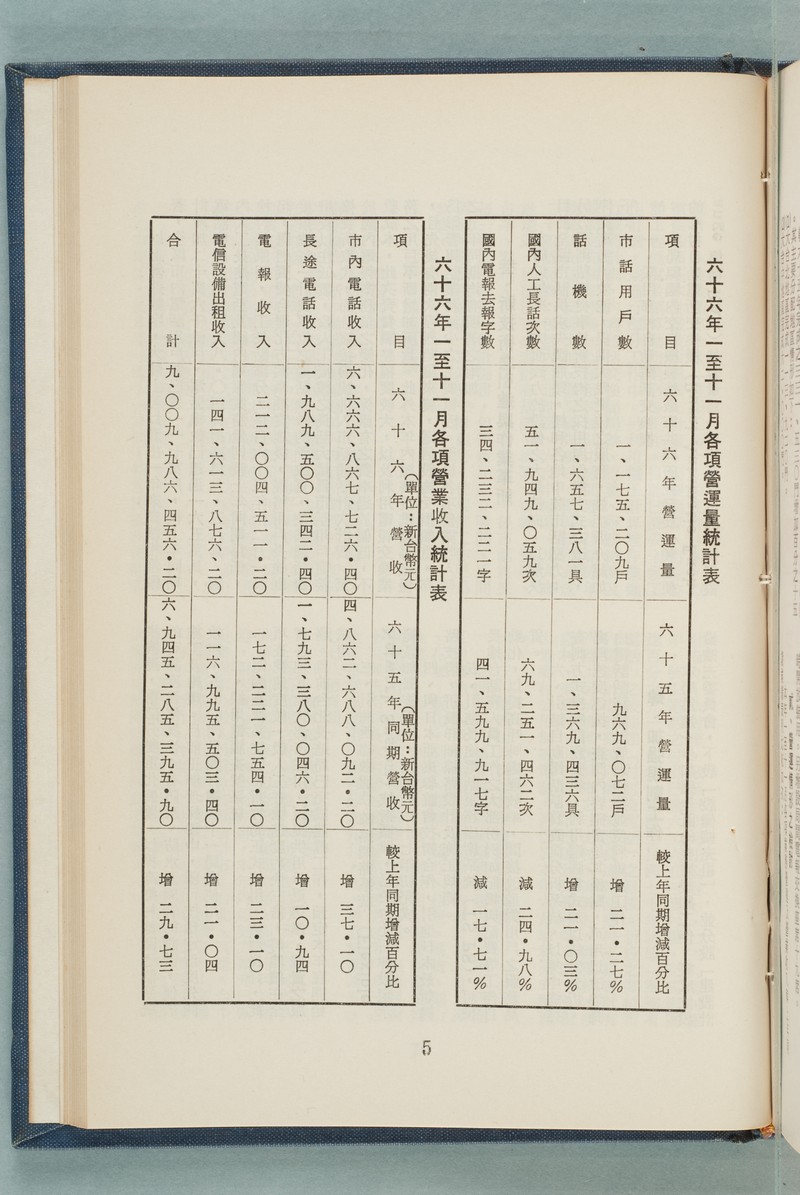 六十六年一至十一月各項營運量統計表
項目 六十六年營運量 六十五年營運量 較上年同期增減百分比
市話用戶數 一、一七五、二〇九戶 九六九、〇七二戶 增 二一・二七%
話機數 一、六五七、三八一具 一、三六九、四三六具 增 二一・〇三%
國內人工長話次數 五一、九四九、〇五九次 六九、二五一、四六二次 減 二四・九八%
國內電報去報字數 三四、二三二、二二一字 四一、五九九、九一七字 減 一七・七一%
六十六年一至十一月各項營業收入統計表
項目 六十六年營收(單位:新台幣元) 六十五年同期營收(單位:新台幣元) 較上年同期增減百分比
市內電話收入 六、六六六、八六七、七二六・四〇 四、八六二、六八八、〇九二・二〇 增 三七・一〇
長途電話收入 一、九八九、五〇〇、三四二・四〇 一、七九三、三八〇、〇四六・二〇 增 一〇・九四
電報收入 二一二、〇〇四、五一一・二〇 一七二、二二一、七五四・一〇 增 二三・一〇
電信設備出租收入 一四一、六一三、八七六、二〇 一一六、九九五、五〇三・四〇 增 二一・〇四
合計 九、〇〇九、九八六、四五六・二〇 六、九四五、二八五、三九五・九〇 增 二九・七三
5